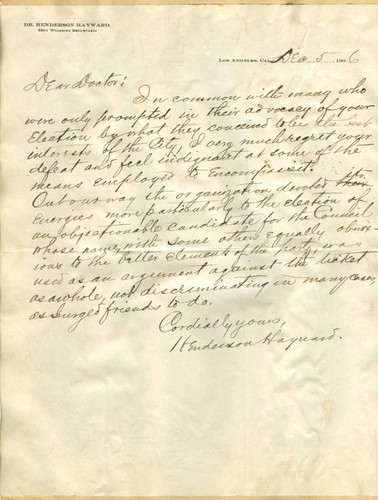 DR. HENDERSON HAYWARD,
2501 WILSHIRE BOULEVARD.
LOS ANGELES, CAL. Dec. 5 1906
Dear Doctor:
In common with many who
were only prompted in their advocacy of your
Election by what they conceived to be the best
interests of the City, I very much regret your
defeat and feel indignant at some of the
means employed to Encompass it.
Out our way the organization devoted its
Energies more particularly to the election of
an objectionable candidate for the Council
whose name, with some others equally obnox-
ious to the better element of the party, was
used as an argument against the ticket
as a whole, not discriminating in many cases,
as I urged friends to do.
Cordially yours,
Henderson Hayward.